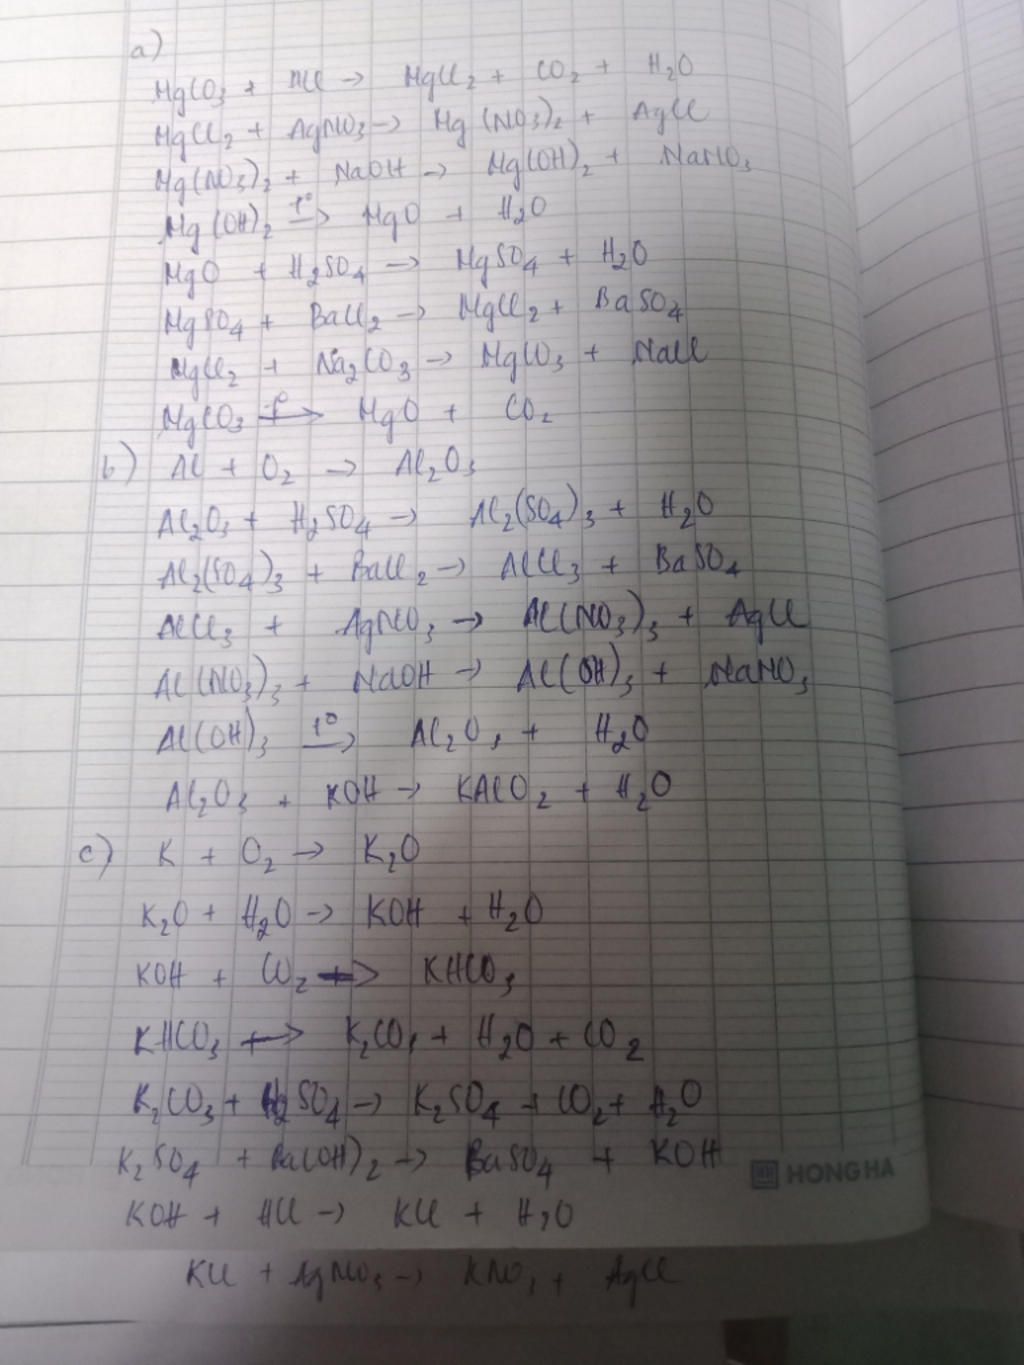 a)
MgCO3 + HCl → MgCl2 + CO2 + H2O
MgCl2 + AgNO3 → Mg(NO3)2 + AgCl
Mg(NO3)2 + NaOH → Mg(OH)2 + NaNO3
Mg(OH)2 t°→ MgO + H2O
MgO + H2SO4 → MgSO4 + H2O
MgSO4 + BaCl2 → MgCl2 + BaSO4
MgCl2 + Na2CO3 → MgCO3 + NaCl
MgCO3 t°→ MgO + CO2
b) Al + O2 → Al2O3
Al2O3 + H2SO4 → Al2(SO4)3 + H2O
Al2(SO4)3 + BaCl2 → AlCl3 + BaSO4
AlCl3 + AgNO3 → Al(NO3)3 + AgCl
Al(NO3)3 + NaOH → Al(OH)3 + NaNO3
Al(OH)3 t°→ Al2O3 + H2O
Al2O3 + KOH → KAlO2 + H2O
c) K + O2 → K2O
K2O + H2O → KOH + H2O
KOH + CO2 → KHCO3
KHCO3 → K2CO3 + H2O + CO2
K2CO3 + H2SO4 → K2SO4 + CO2 + H2O
K2SO4 + Ba(OH)2 → BaSO4 + KOH
HONG HA
KOH + HCl → KCl + H2O
KCl + AgNO3 → KNO3 + AgCl